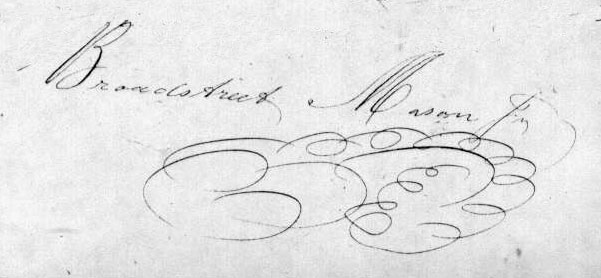 Broadstreet Mason Jr